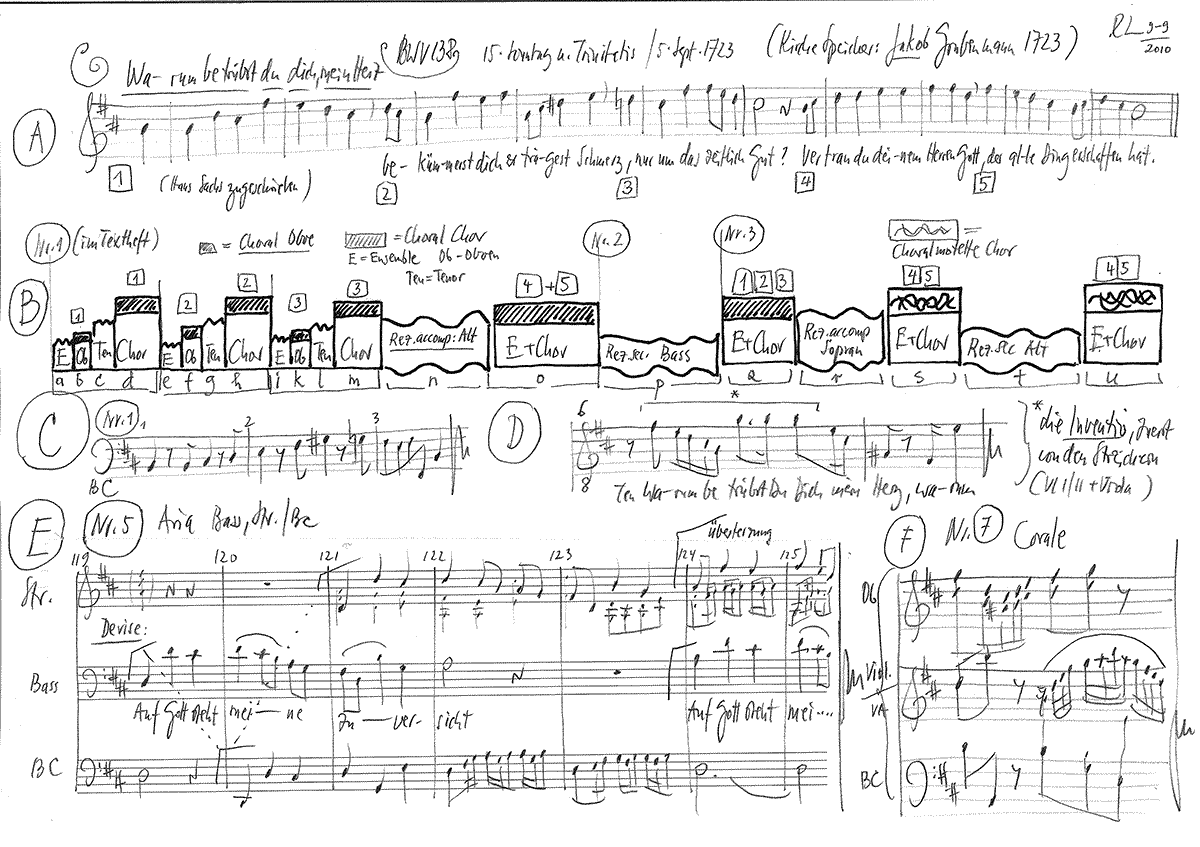 BWV 138 15. Sonntag n. Trinitatis / 5. Sept. 1723 (Kirche Speicher: Jakob Grubenmann 1723) RL 9-9 2010
Wa- rum betrübst du dich, mein Herz
A
be- küm-merst dich & trä-gest Schmerz, nur um das zeitlich Gut? Vertrau du dei-nem Herren Gott, der al-le Ding erschaffen hat.
1 (Hans Sachs zugeschrieben) 2 3 4 5
Nr. 1 (im Textheft) = Choral Oboe = Choral Chor Nr. 2 Nr. 3 =
E = Ensemble Ob = Oboen Choralmotette Chor
Ten = Tenor
B
1 1 2 2 3 3 4 + 5 1 2 3 4 5 4 5
E Ob Ten Chor E Ob Ten Chor E Ob Ten Chor Rez. accomp: Alt E+Chor Rez. sec. Bass E+Chor Rez. accomp Sopran E+Chor Rez. sec Alt E+Chor
a b c d e f g h i k l m n o p q r s t u
C Nr. 1 1 2 3
BC
D 6 8 *
Ten Wa-rum be trübst Du Dich mein Herz, wa-rum
* die Inventio, zuerst
von den Streichern
(Vl I/II + Viola)
E Nr. 5 Aria Bass, Str./Bc
119 120 121 122 123 124 125
Überterzung
Str.
Devise:
Bass
Auf Gott steht mei — ne Zu — ver- sicht Auf Gott steht mei....
BC
F Nr. 7 Corale
Ob
Viol.
VA
BC